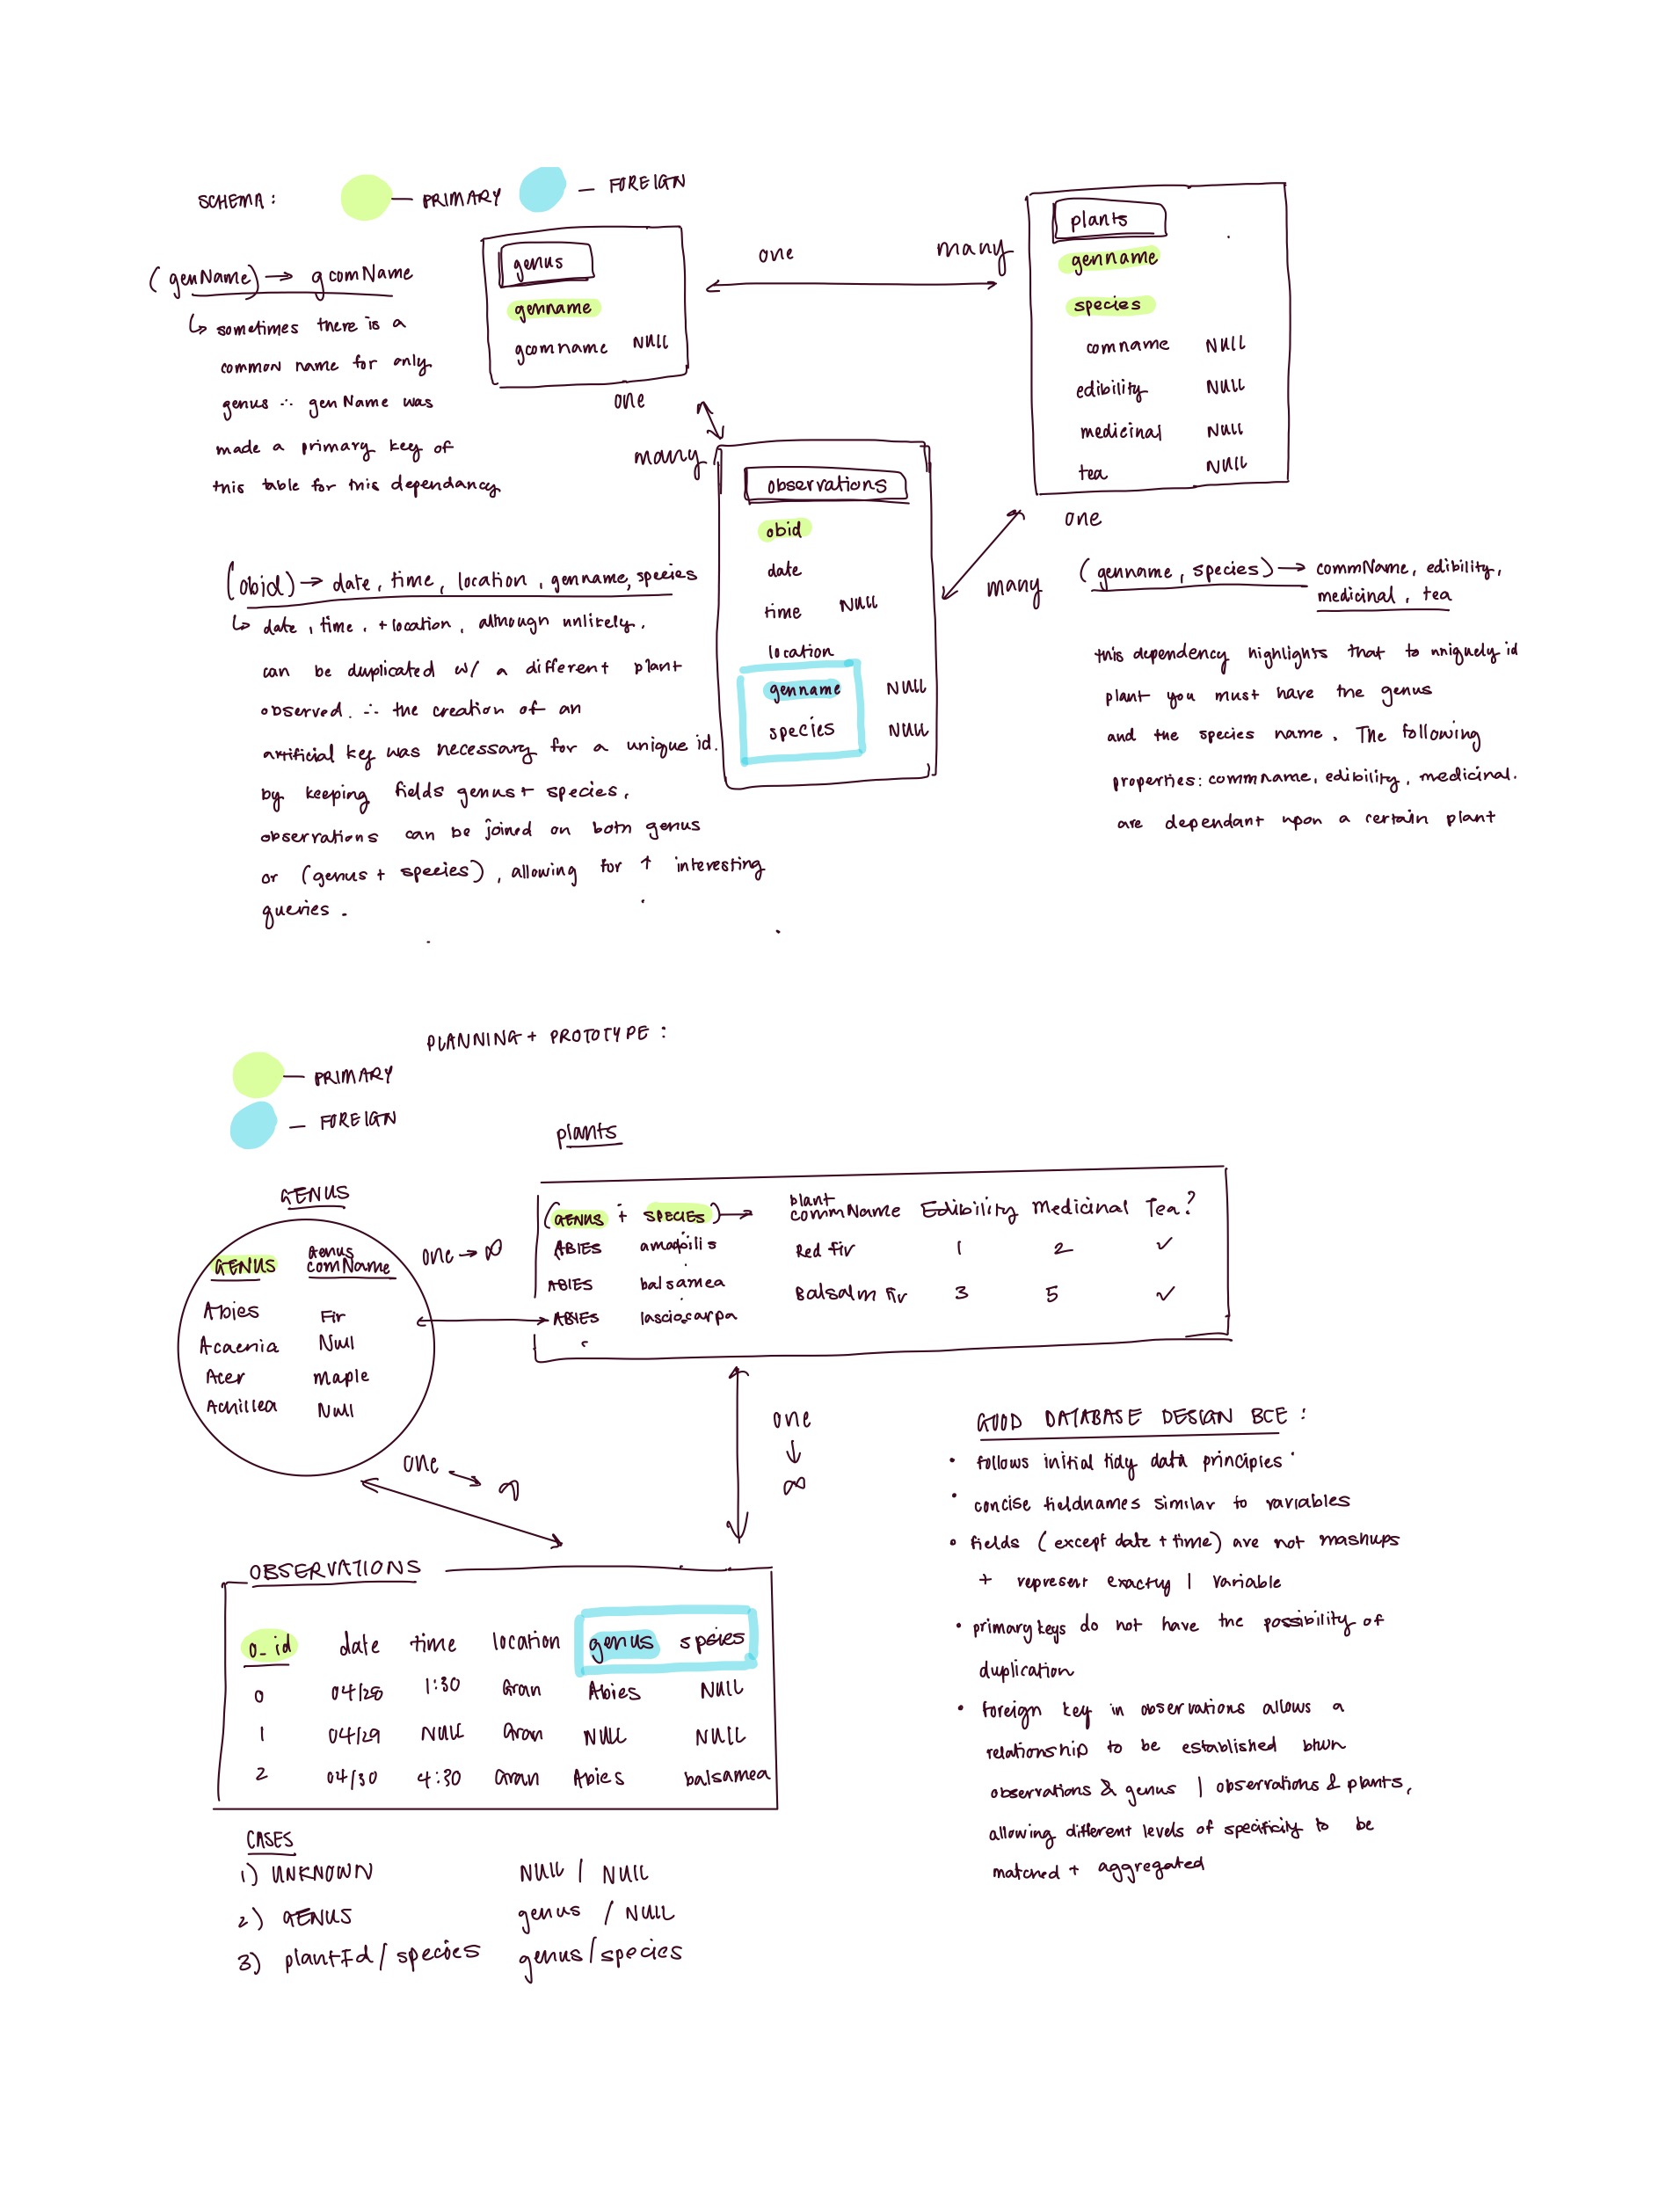 SCHEMA:
— PRIMARY
— FOREIGN
(genName) → gcomName
↳ sometimes there is a
common name for only
genus ∴ genName was
made a primary key of
this table for this dependancy
genus
genname
gcomname NULL
one
many
plants
genname
species
comname NULL
edibility NULL
medicinal NULL
tea NULL
one
many
observations
obid
date
time NULL
location
genname NULL
species NULL
one
many
(obid) → date, time, location, genname, species
↳ date, time, + location, although unlikely,
can be duplicated w/ a different plant
observed. ∴ the creation of an
artificial key was necessary for a unique id.
by keeping fields genus + species,
observations can be joined on both genus
or (genus + species), allowing for ↑ interesting
queries.
(genname, species) → commName, edibility,
medicinal, tea
this dependency highlights that to uniquely id
plant you must have the genus
and the species name. The following
properties: commname, edibility, medicinal.
are dependant upon a certain plant
PLANNING + PROTOTYPE:
— PRIMARY
— FOREIGN
GENUS
GENUS genus comName
Abies Fir
Acaenia Null
Acer maple
Achillea Null
one → ∞
plants
(GENUS + SPECIES) → plant commName Edibility Medicinal Tea?
ABIES amabilis Red fir 1 2 ✓
ABIES balsamea Balsalm fir 3 5 ✓
ABIES lasciocarpa
one → ∞
one
↓
∞
OBSERVATIONS
o_id date time location genus speies
0 04/28 1:30 Gran Abies NULL
1 04/29 NULL Gran NULL NULL
2 04/30 4:30 Gran Abies balsamea
CASES
1) UNKNOWN NULL / NULL
2) GENUS genus / NULL
3) plantId / species genus/species
GOOD DATABASE DESIGN BCE:
• follows initial tidy data principles
• concise fieldnames similar to variables
• fields (except date + time) are not mashups
+ represent exactly 1 variable
• primary keys do not have the possibility of
duplication
• foreign key in observations allows a
relationship to be established btwn
observations & genus | observations & plants,
allowing different levels of specificity to be
matched + aggregated